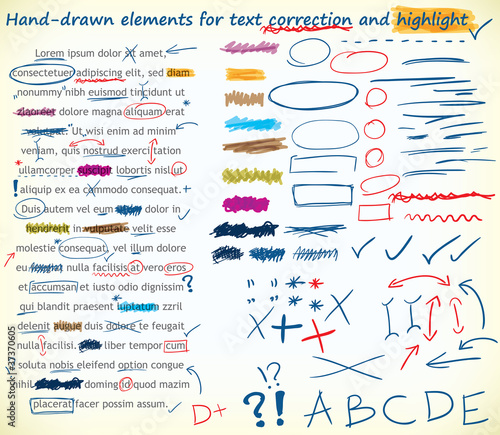 Hand-drawn elements for text correction and highlight
Lorem ipsum dolor sit amet,
consectetuer adipiscing elit, sed diam
nonummy nibh euismod tincidunt ut
laoreet dolore magna aliquam erat
volutpat. Ut wisi enim ad minim
veniam, quis nostrud exercitation
ullamcorper suscipit lobortis nisl ut
! aliquip ex ea commodo consequat.
Duis autem vel eum dolor in
hendrerit in vulputate velit esse
molestie consequat, vel illum dolore
eu nulla facilisis at vero eros
et accumsan et iusto odio dignissim ?
qui blandit praesent luptatum zzril
delenit augue duis dolore te feugait
nulla facilisi. liber tempor cum
soluta nobis eleifend option congue
nihil doming id quod mazim
placerat facer possim assum.
D+
" * " *
X + + X
!?
?! A B C D E
Adobe Stock | #37370605